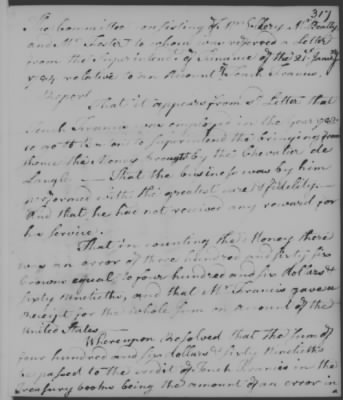 317
The Committee consisting of Mr Ellery Mr Beatty
and Mr Foster to whom was referred a Letter
from the Superintendt of Finance of the 21st Janry
1784 relative to an Account of Tench Francis,
Report
That it appears from sd Letter that
Tench Francis was employed in the year
to go to Boston to Superintend the bringing from
thence the Money brought by the Chevalier de
Langle — That the business was by him
performed with the greatest care & fidelity —
And that he has not received any reward for
his Service.
That in counting the Money there
was an error of three hundred and sixty six
Crowns equal to four hundred and six dollars &
sixty Ninetieths, and that Mr Francis gave a
receipt for the whole sum on account of the
United States —
Whereupon Resolved that the sum of
four hundred and six dollars & sixty Ninetieths
be passed to the credit of Tench Francis in the
Treasury books being the amount of an error in